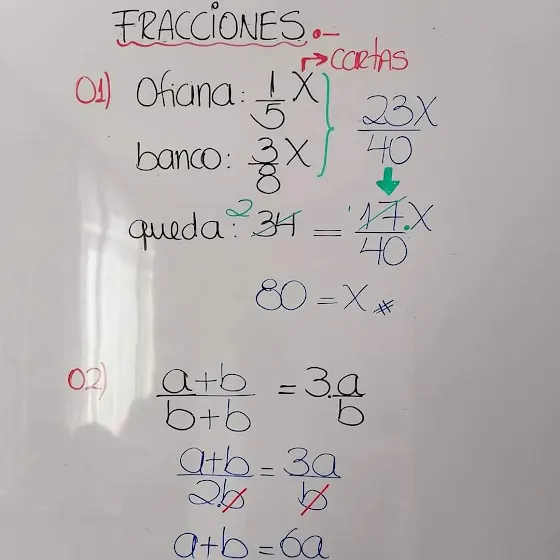 FRACCIONES.-
→ CARTAS
01) Oficina: 1/5 X
23X/40
banco: 3/8 X
queda: 2 34 = 1 17.X/40
80 = X #
02) a+b/b+b = 3.a/b
a+b/2.b = 3a/b
a+b = 6a